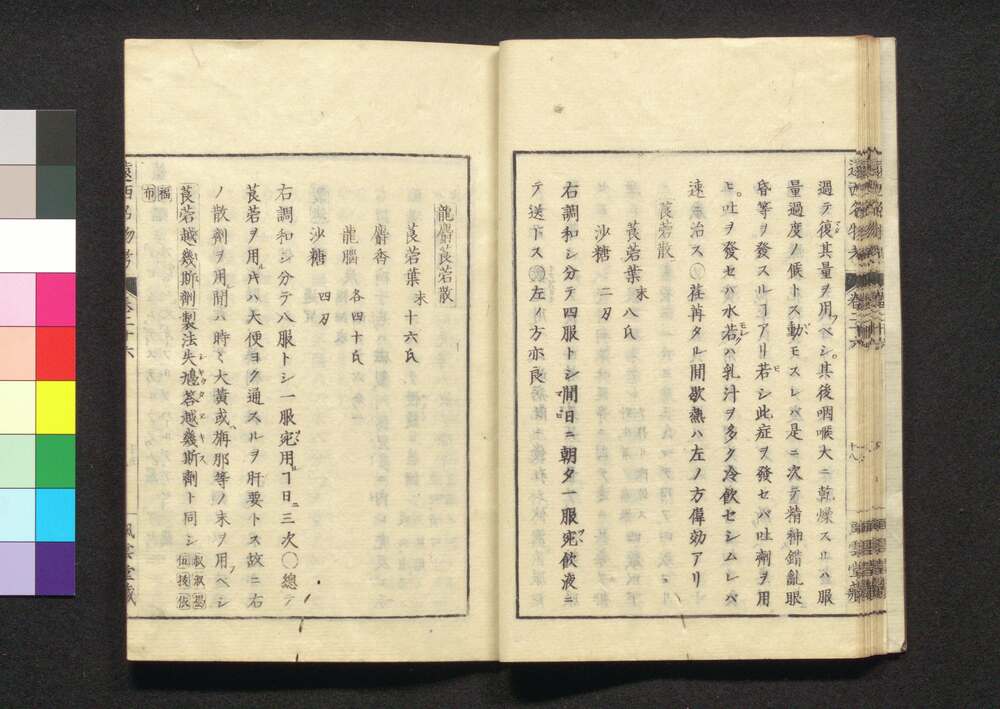 過テ復其量ヲ用ベシ。其後咽喉大ニ乾燥スルハ服
量過度ノ候トス動モスレバ是ニ次テ精神錯亂眼
昏等ヲ發スルヿアリ若シ此症ヲ發セバ吐劑ヲ用
ヒ。吐ヲ發セハ水若ハ乳汁ヲ多ク冷飲セシムレバ
速ニ治ス〇荏苒タル間歇熱ハ左ノ方偉効アリ
莨菪散
莨菪葉末 八氏
沙糖 二刃
右調和シ分テ四服トシ間日ニ朝夕一服宛飲液ニ
テ送下ス〇左ノ方亦良
龍麝莨菪散
莨菪葉末 十六氏
麝香
龍腦 各四十氏
沙糖 四刃
右調和シ分テ八服トシ一服宛用ヿ日三次〇總テ
莨菪ヲ用ルキハ大便ヨク通スルヲ肝要トス故ニ右
ノ散劑ヲ用ル間ハ時々大黃或ハ旃那等ノ末ヲ用ベシ
莨菪越幾斯劑製法失鳩答越幾斯劑ト同シ
遠西名物考
卷二十六
風雲堂藏
福
布